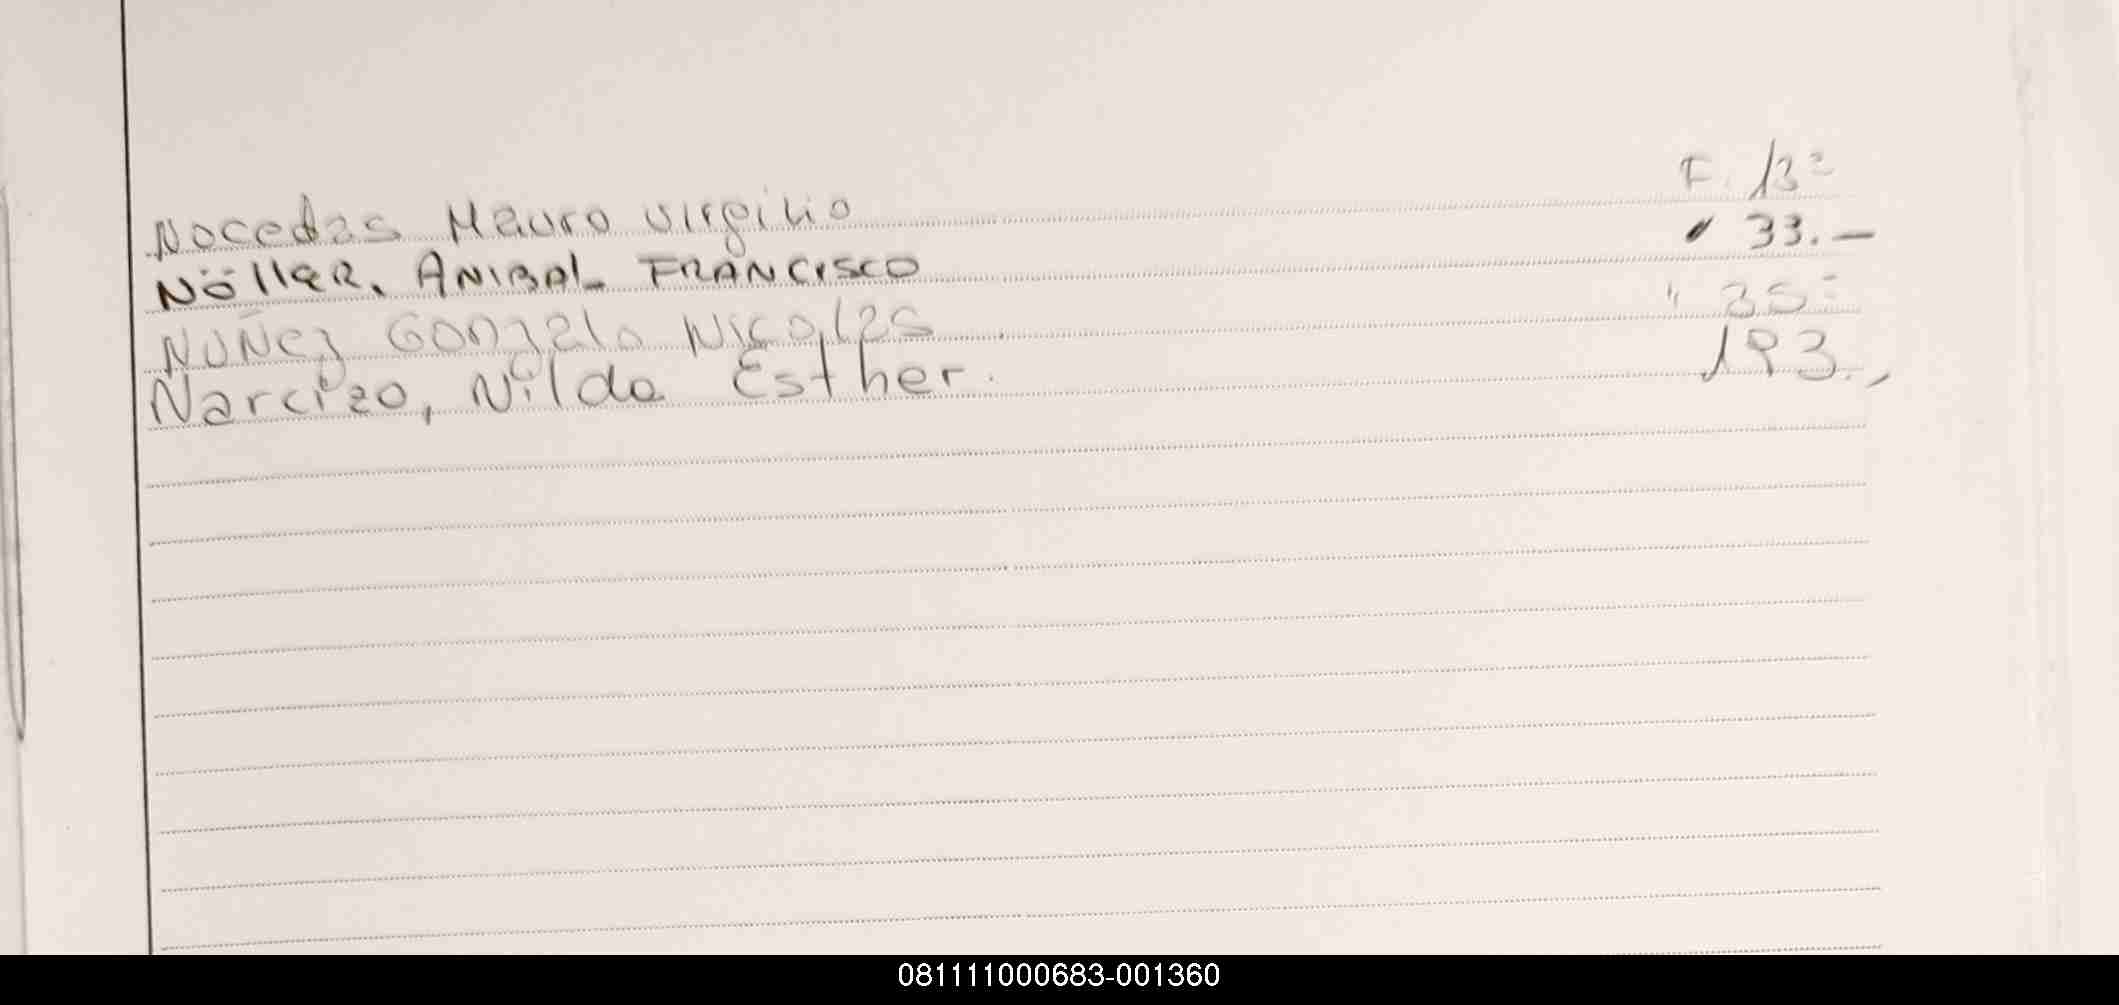 Nocedas Mauro Virgilio F. 13=
NöllER, ANIBAL FRANCISCO " 33.—
NUÑez Gonzalo Nicolas " 35=
Narcizo, Nilda Esther. 193.,
081111000683-001360